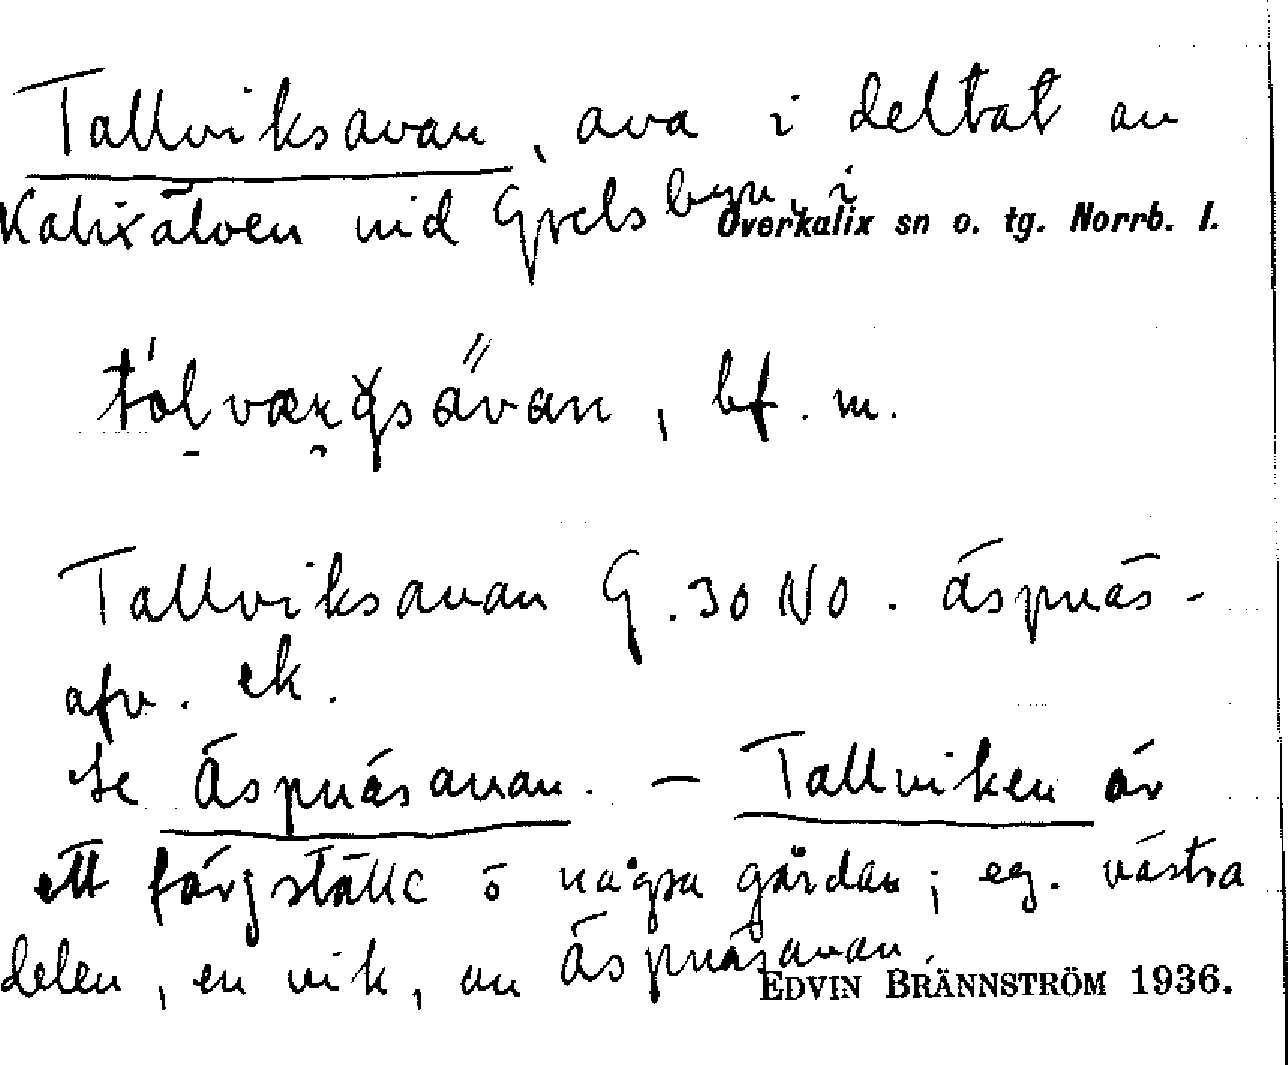 Tallviksavan, ava i deltat av
Kalixälven vid Grelsbyn i Överkalix sn o. tg. Norrb. l.
bf. m.
Tallviksavan G. 30 NO. Äspnäs-
afv. ek.
se Äspnäsavan. — Tallviken är
ett färgställe o några gårdar; eg. västra
delen, en vik, av Äspnäsavan.
EDVIN BRÄNNSTRÖM 1936.